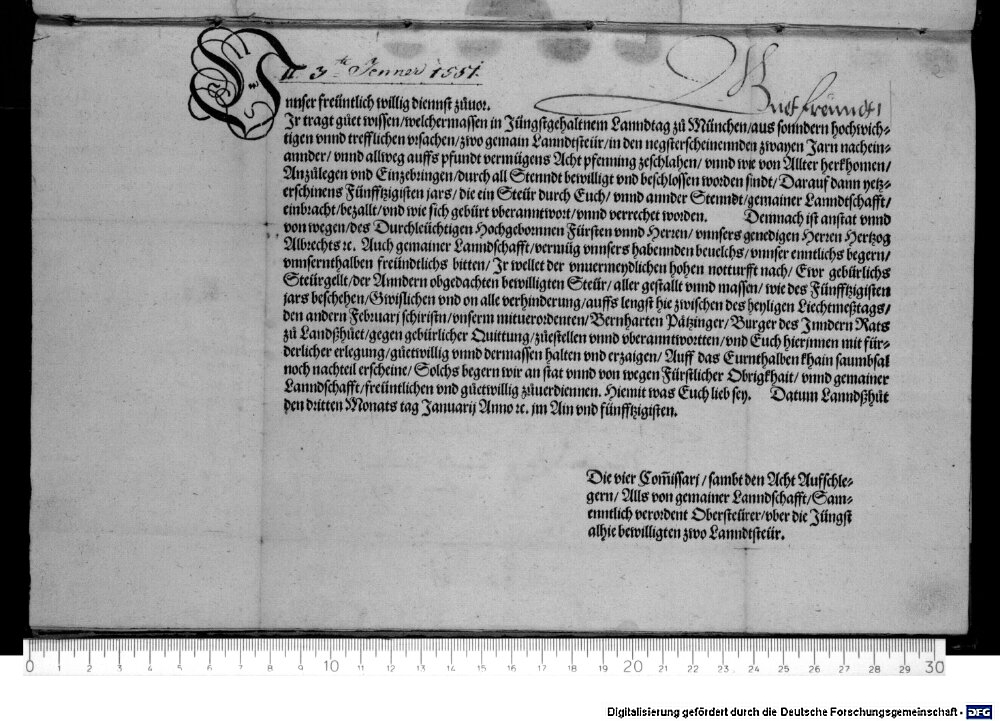 3te Jenner 1551.
Guet freundt
Unnser freüntlich willig diennst züuor.
Jr tragt güet wissen/welchermassen in Jüngstgehaltnem Lanndtag zü München/aus sonndern hochwich-
tigen vnnd trefflichen vrsachen/zwo gemain Lanndtsteür/in den negsterscheinennden zwayen Jarn nachein-
annder/vnnd allweg auffs pfundt vermügens Acht pfenning zeschlahen/vnnd wie von Allter herkhomen/
Anzülegen vnd Einzebringen/durch all Stenndt bewilligt vnd beschlossen worden sindt/Darauf dann yetz-
erschinens Fünfftzigisten jars/die ein Steür durch Euch/vnnd annder Stenndt/gemainer Lanndtschafft/
einbracht/bezallt/vnd wie sich gebürt vberanntwort/vnnd verrechet worden. Demnach ist anstat vnnd
von wegen/des Durchleüchtigen Hochgebornnen Fürsten vnnd Herren/vnnsers genedigen Herren Hertzog
Albrechts ⁊c. Auch gemainer Lanndschafft/vermüg vnnsers habennden beuelchs/vnnser enntlichs begern/
vnnsernthalben freündtlichs bitten/Jr wellet der vnuermeydlichen hohen notturfft nach/Ewr gebürlichs
Steürgellt/der Anndern obgedachten bewilligten Steür/aller gestallt vnnd massen/wie des Fünfftzigisten
jars beschehen/Gwislichen vnd on alle verhinderung/auffs lengst hie zwischen des heyligen Liechtmeßtags/
den andern Februarj schiristn/vnserm mituerordenten/Bernharten Pätzinger/Burger des Jnndern Rats
zü Landßhüet/gegen gebürlicher Quittung/züestellen vnnd vberanntwortten/vnd Euch hierjnnen mit für-
derlicher erlegung/güetwillig vnnd dermassen halten vnd erzaigen/Auff das Eurnthalben khain saumbsal
noch nachteil erscheine/Solchs begern wir an stat vnnd von wegen Fürstlicher Obrigkhait/vnnd gemainer
Lanndschafft/freüntlichen vnd güetwillig züuerdiennen. Hiemit was Euch lieb sey. Datum Lanndßhüt
den dritten Monats tag Januarij Anno ⁊c. jm Ain vnd fünfftzigisten.
Die vier Com̄issarj/sambt den Acht Aufschle-
gern/Alls von gemainer Lanndschafft/Sam-
enntlich verordent Obersteürer/vber die Jüngst
alhie bewilligten zwo Lanndtsteür.
0 1 2 3 4 5 6 7 8 9 10 11 12 13 14 15 16 17 18 19 20 21 22 23 24 25 26 27 28 29 30
Digitalisierung gefördert durch die Deutsche Forschungsgemeinschaft - DFG